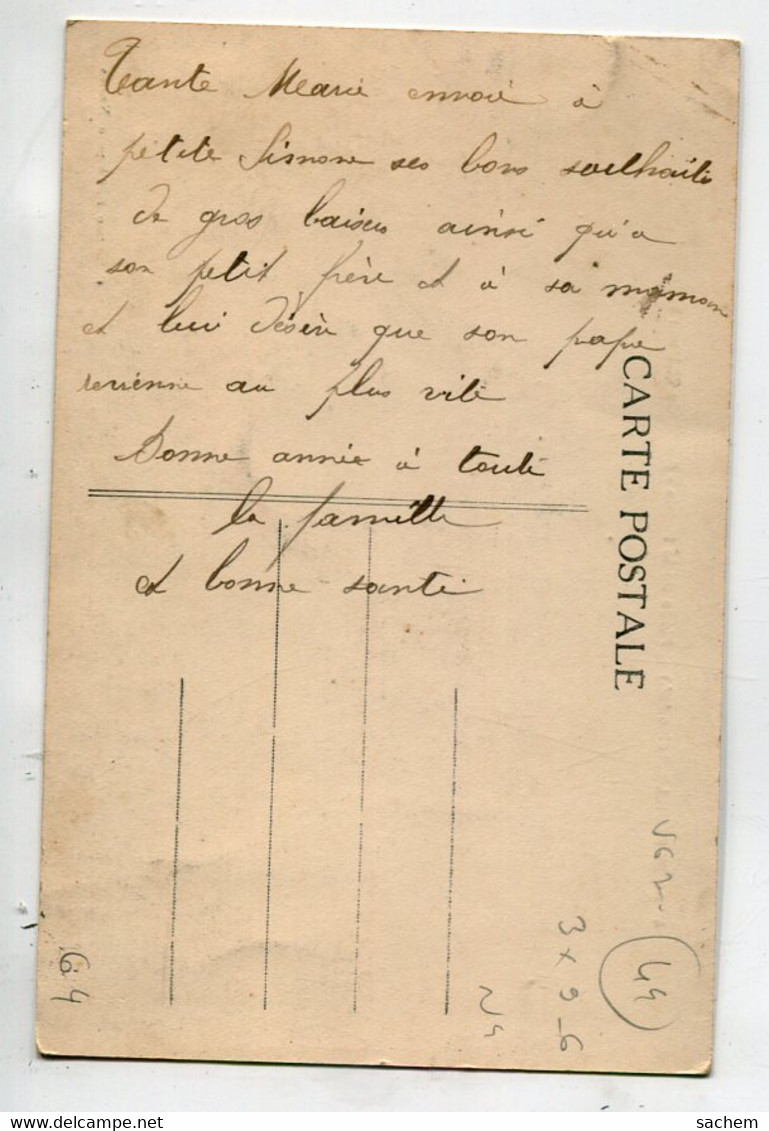 Tante Marie envoie à
petite Simone ses bons souhaits
de gros baisers ainsi qu'a
son petit frère et à sa maman
et lui désire que son papa
revienne au plus vite
Bonne année à toute
la famille
et bonne santé
CARTE POSTALE
64
44
3 x 9_6
www.delcampe.net
sachem